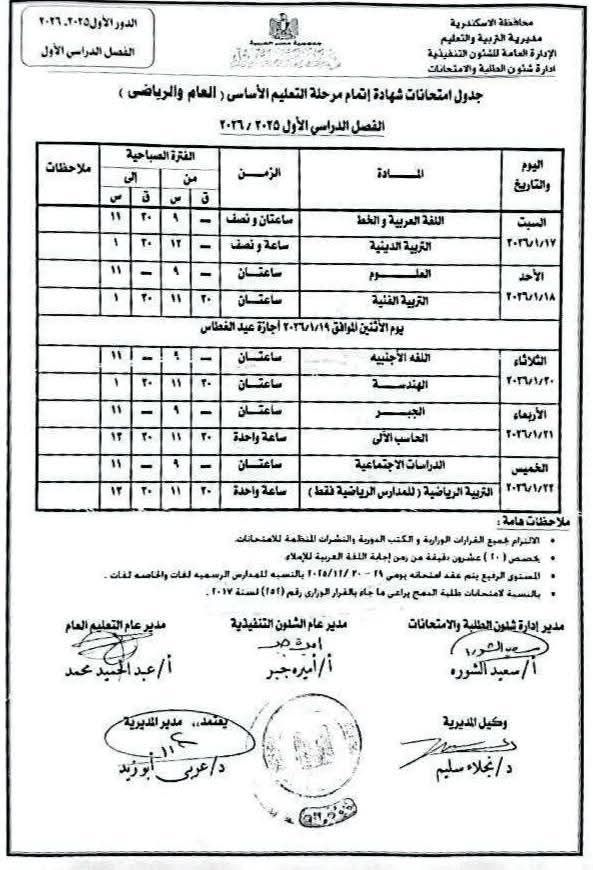 محافظة الاسكندرية
مديرية التربية والتعليم
الإدارة العامة للشئون التنفيذية
ادارة شئون الطلبة والامتحانات
جمهورية مصر العربية
الدور الأول ٢٠٢٥ـ ٢٠٢٦
الفصل الدراسي الأول
جدول امتحانات شهادة إتمام مرحلة التعليم الأساسى ( العام والرياضى )
الفصل الدراسي الأول ٢٠٢٥ / ٢٠٢٦
اليوم والتاريخ المــادة الزمن الفترة الصباحية ملاحظات
من إلى
ق س ق س
السبت ٢٠٢٦/١/١٧ اللغة العربية و الخط ساعتان و نصف — ٩ ٣٠ ١١
التربية الدينية ساعة و نصف — ١٢ ٣٠ ١
الأحد ٢٠٢٦/١/١٨ العلــــوم ساعتــان — ٩ — ١١
التربية الفنية ساعتــان ٣٠ ١١ ٣٠ ١
يوم الأثنين الموافق ٢٠٢٦/١/١٩ أجازة عيد الغطاس
الثلاثاء ٢٠٢٦/١/٢٠ اللغه الأجنبيه ساعتــان — ٩ — ١١
الهندسة ساعتــان ٣٠ ١١ ٣٠ ١
الأربعاء ٢٠٢٦/١/٢١ الجبــر ساعتــان — ٩ — ١١
الحاسب الآلى ساعة واحدة ٣٠ ١١ ٣٠ ١٢
الخميس ٢٠٢٦/١/٢٢ الدراسات الاجتماعية ساعتــان — ٩ — ١١
التربية الرياضية ( للمدارس الرياضية فقط ) ساعة واحدة ٣٠ ١١ ٣٠ ١٢
ملاحظات هامة :
• الالتزام لجميع القرارات الوزارية و الكتب الدورية والنشرات المنظمة للامتحانات.
• يخصص (٢٠) عشرون دقيقة من زمن إجابة اللغة العربية للإملاء.
• المستوى الرفيع يتم عقد امتحانه يومى ٢٩ – ٢٠٢٥/١٢/٣٠ بالنسبه للمدارس الرسميه لغات والخاصه لغات .
• بالنسبة لامتحانات طلبة الدمج يراعى ما جاء بالقرار الوزارى رقم (٢٥٢) لسنة ٢٠١٧ .
مدير إدارة شئون الطلبة والامتحانات
أ/ سعيد الشوره
مدير عام الشئون التنفيذية
أ/ أميره جبر
مدير عام التعليم العام
أ/ عبد الحميد محمد
وكيل المديرية
د/ نجلاء سليم
يعتمد،، مدير المديرية
د/ عربى أبو زيد